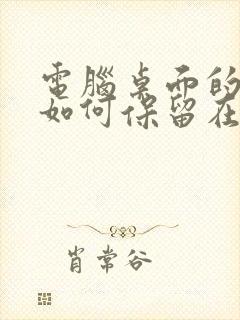 電腦桌面的
如何保留在
肖常谷